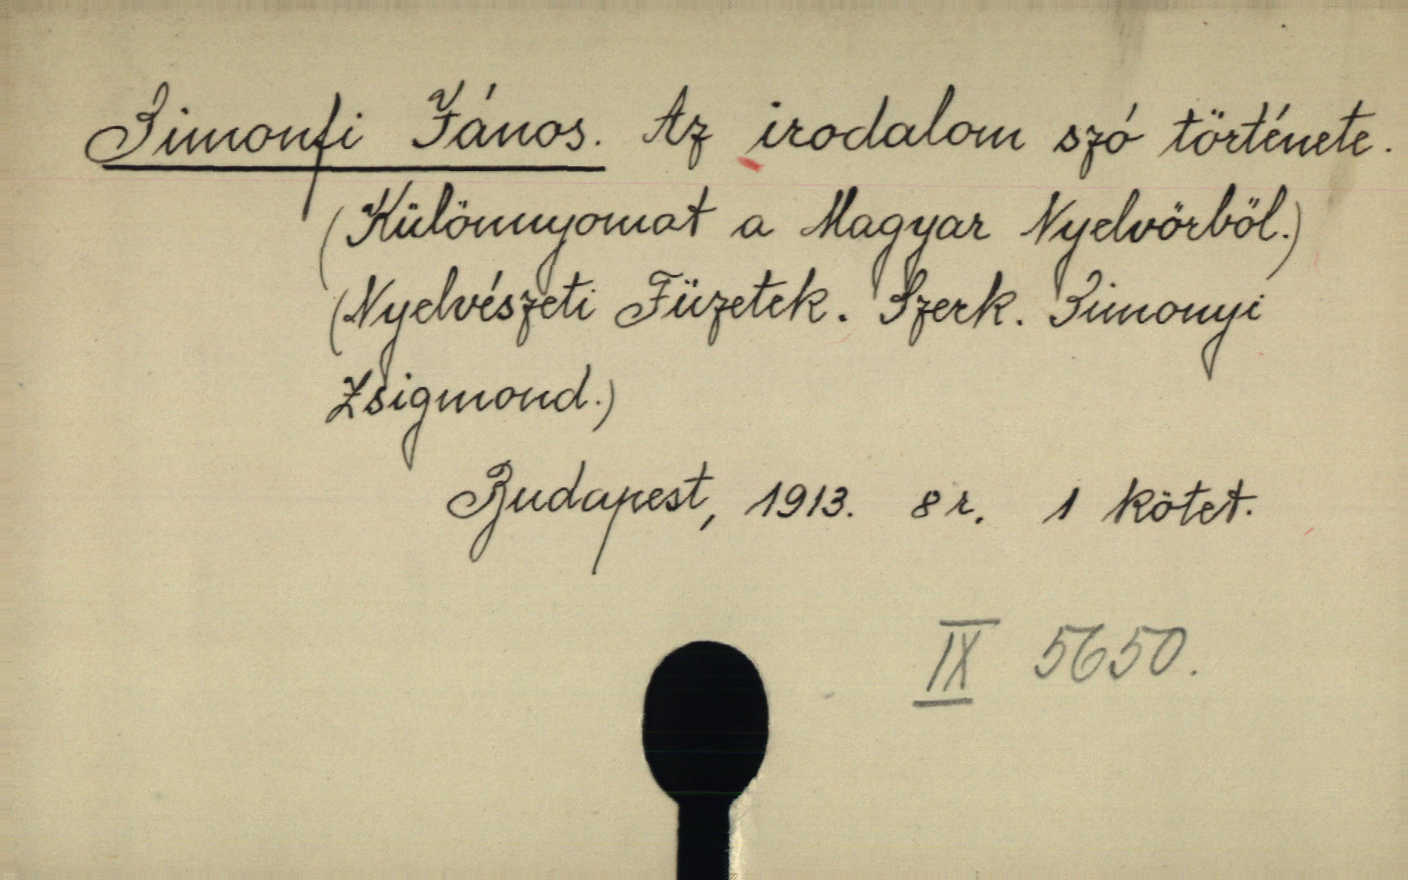 Simonfi János. Az irodalom szó története.
(Különnyomat a Magyar Nyelvőrből.)
(Nyelvészeti Füzetek. Szerk. Simonyi
Zsigmond.)
Budapest, 1913. 8 r. 1 kötet.
IX 5650.